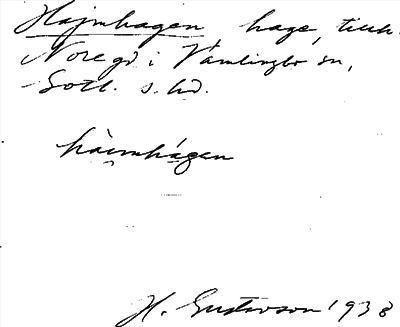 Hajmhagen, hage, tillh.
Nore gd i Vamlingbo sn,
Gotl. s. hd.
hàimhágen
H. Gustavson 1938